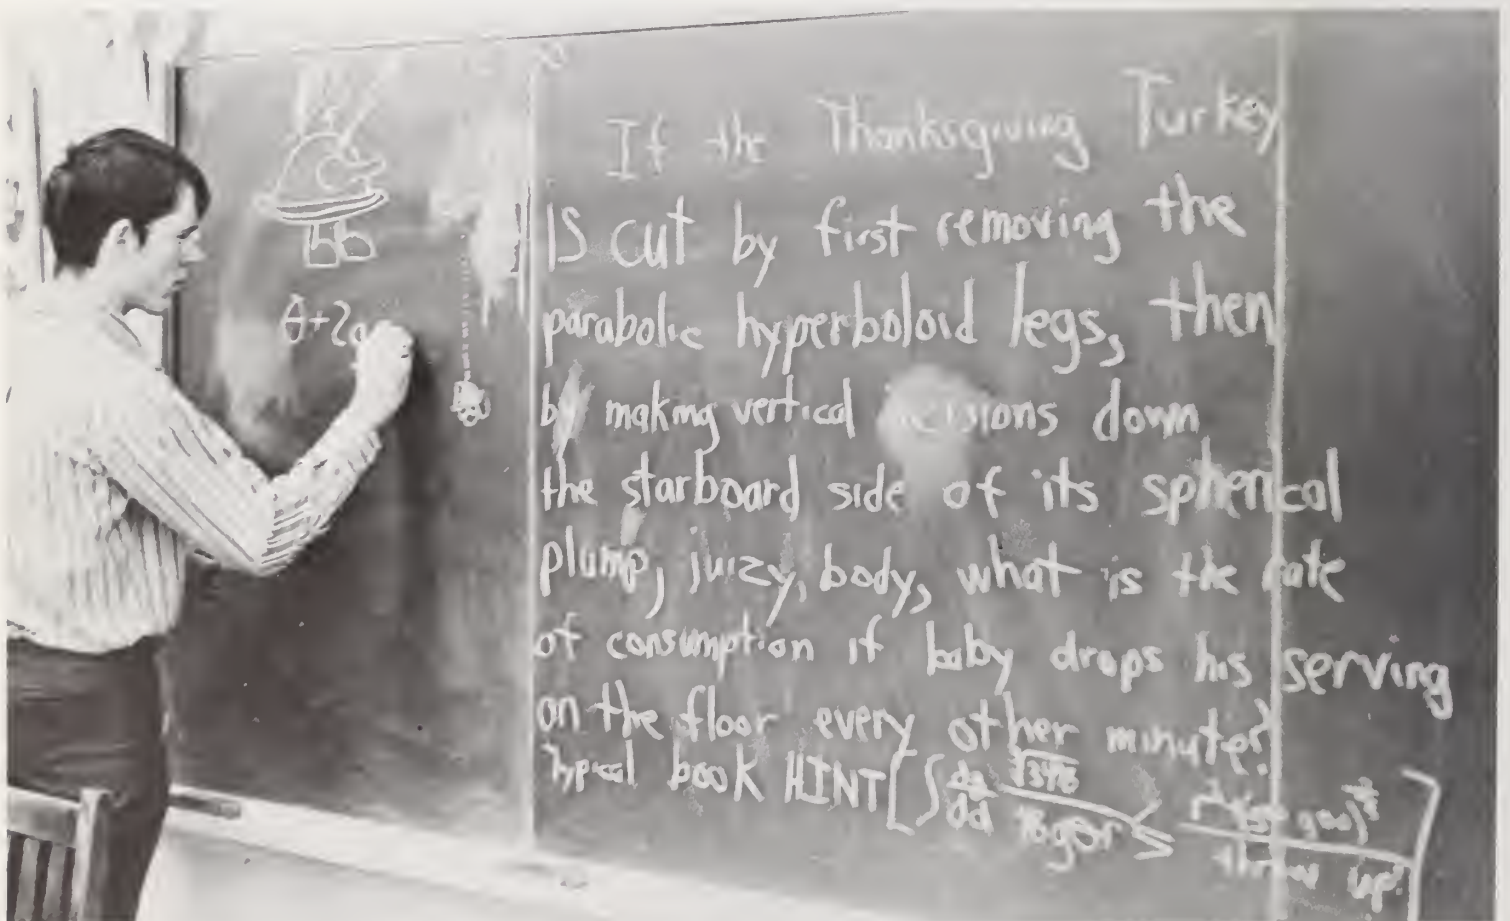 θ+2
If the Thanksgiving Turkey
IS cut by first removing the
parabolic hyperboloid legs, then
by making vertical incisions down
the starboard side of its spherical
plump, juizy, body, what is the rate
of consumption if baby drops his serving
on the floor every other minute?
Typical book HINT [∫ da/dd
throw up!